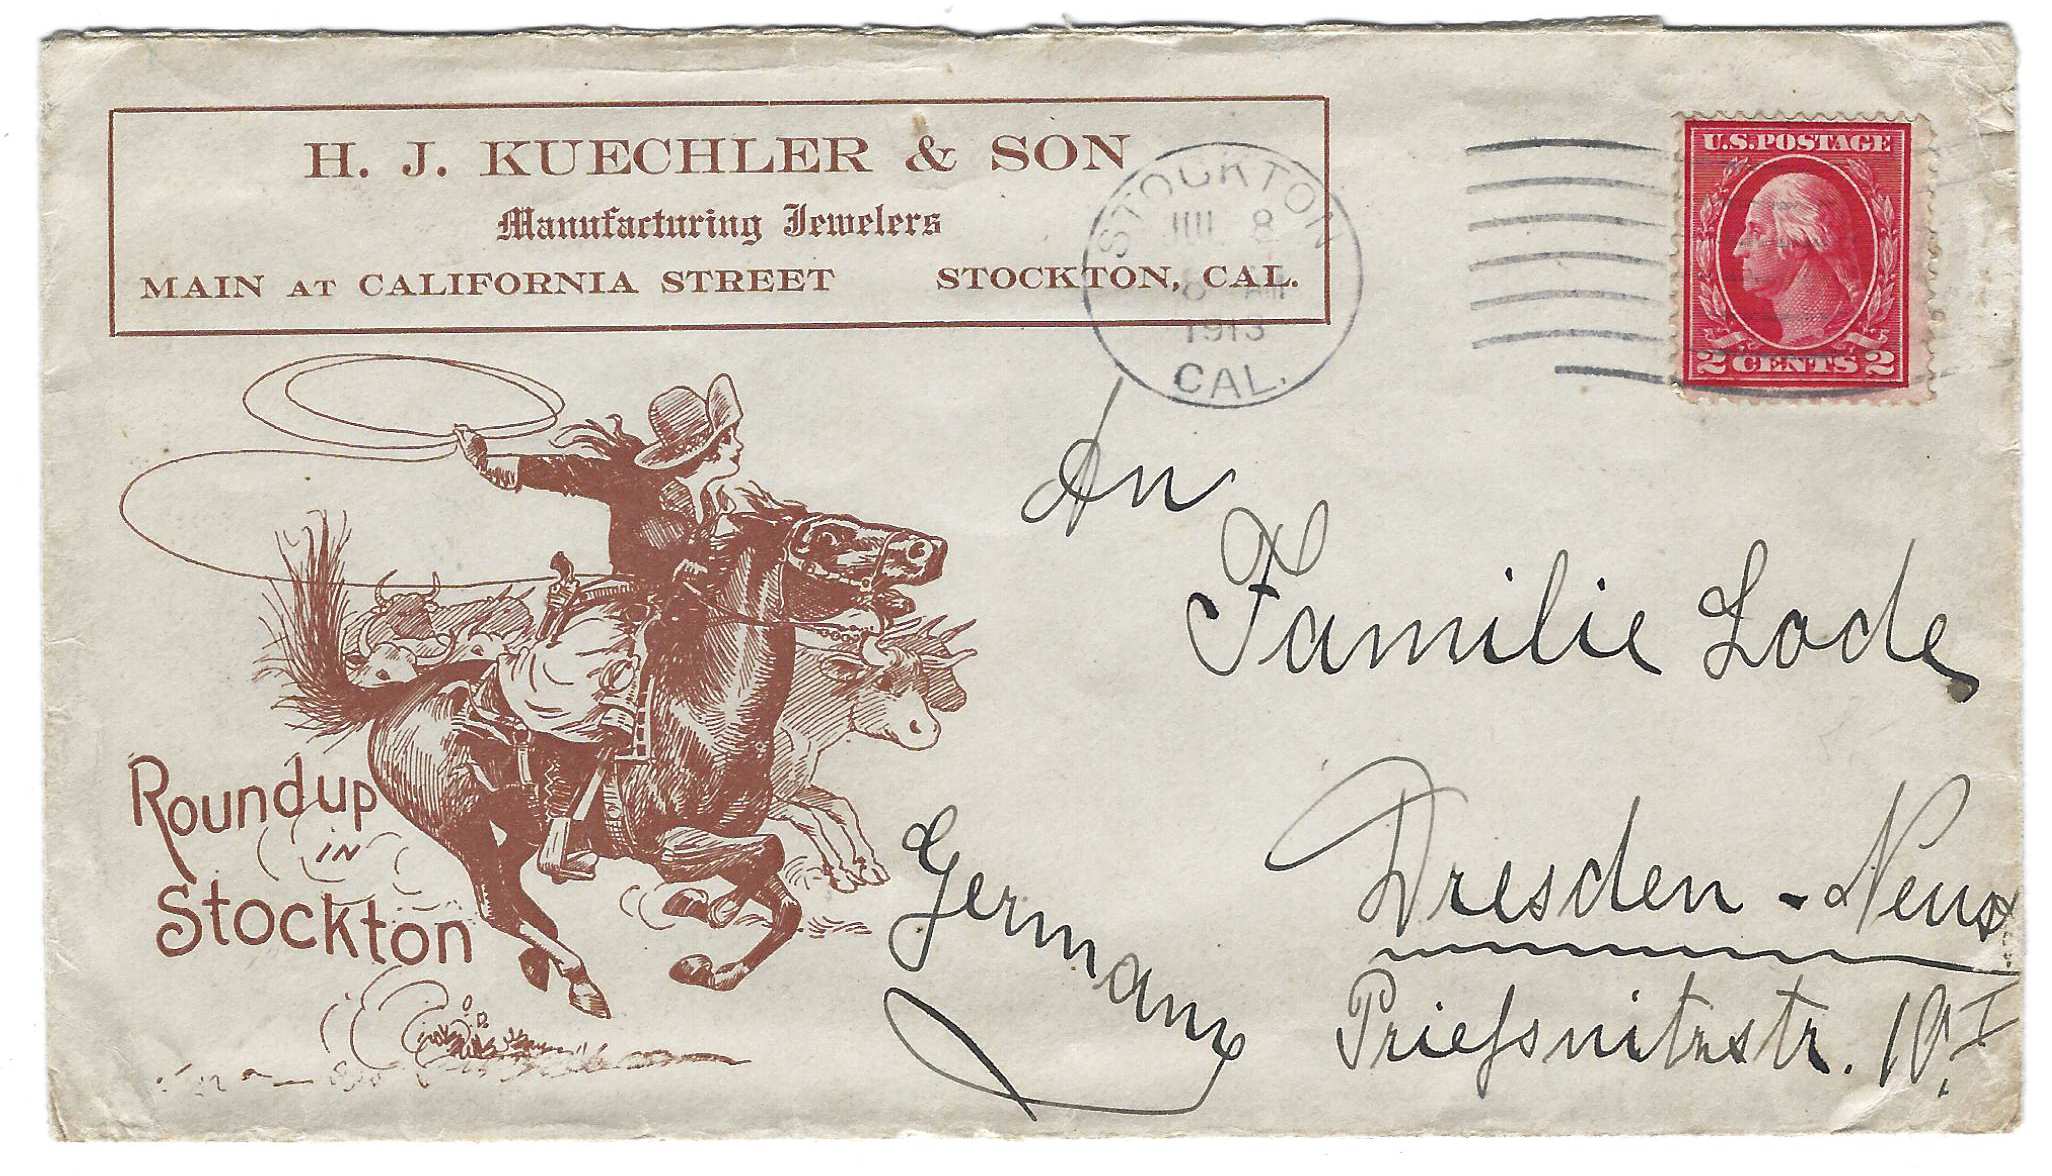 H. J. KUECHLER & SON
Manufacturing Jewelers
MAIN AT CALIFORNIA STREET STOCKTON, CAL.
STOCKTON
JUL 8
1913
CAL.
U.S. POSTAGE
2 CENTS 2
Roundup
IN
Stockton
An
Familie Lode
Dresden - Neus
Germany
Priessnitzstr. 10, I